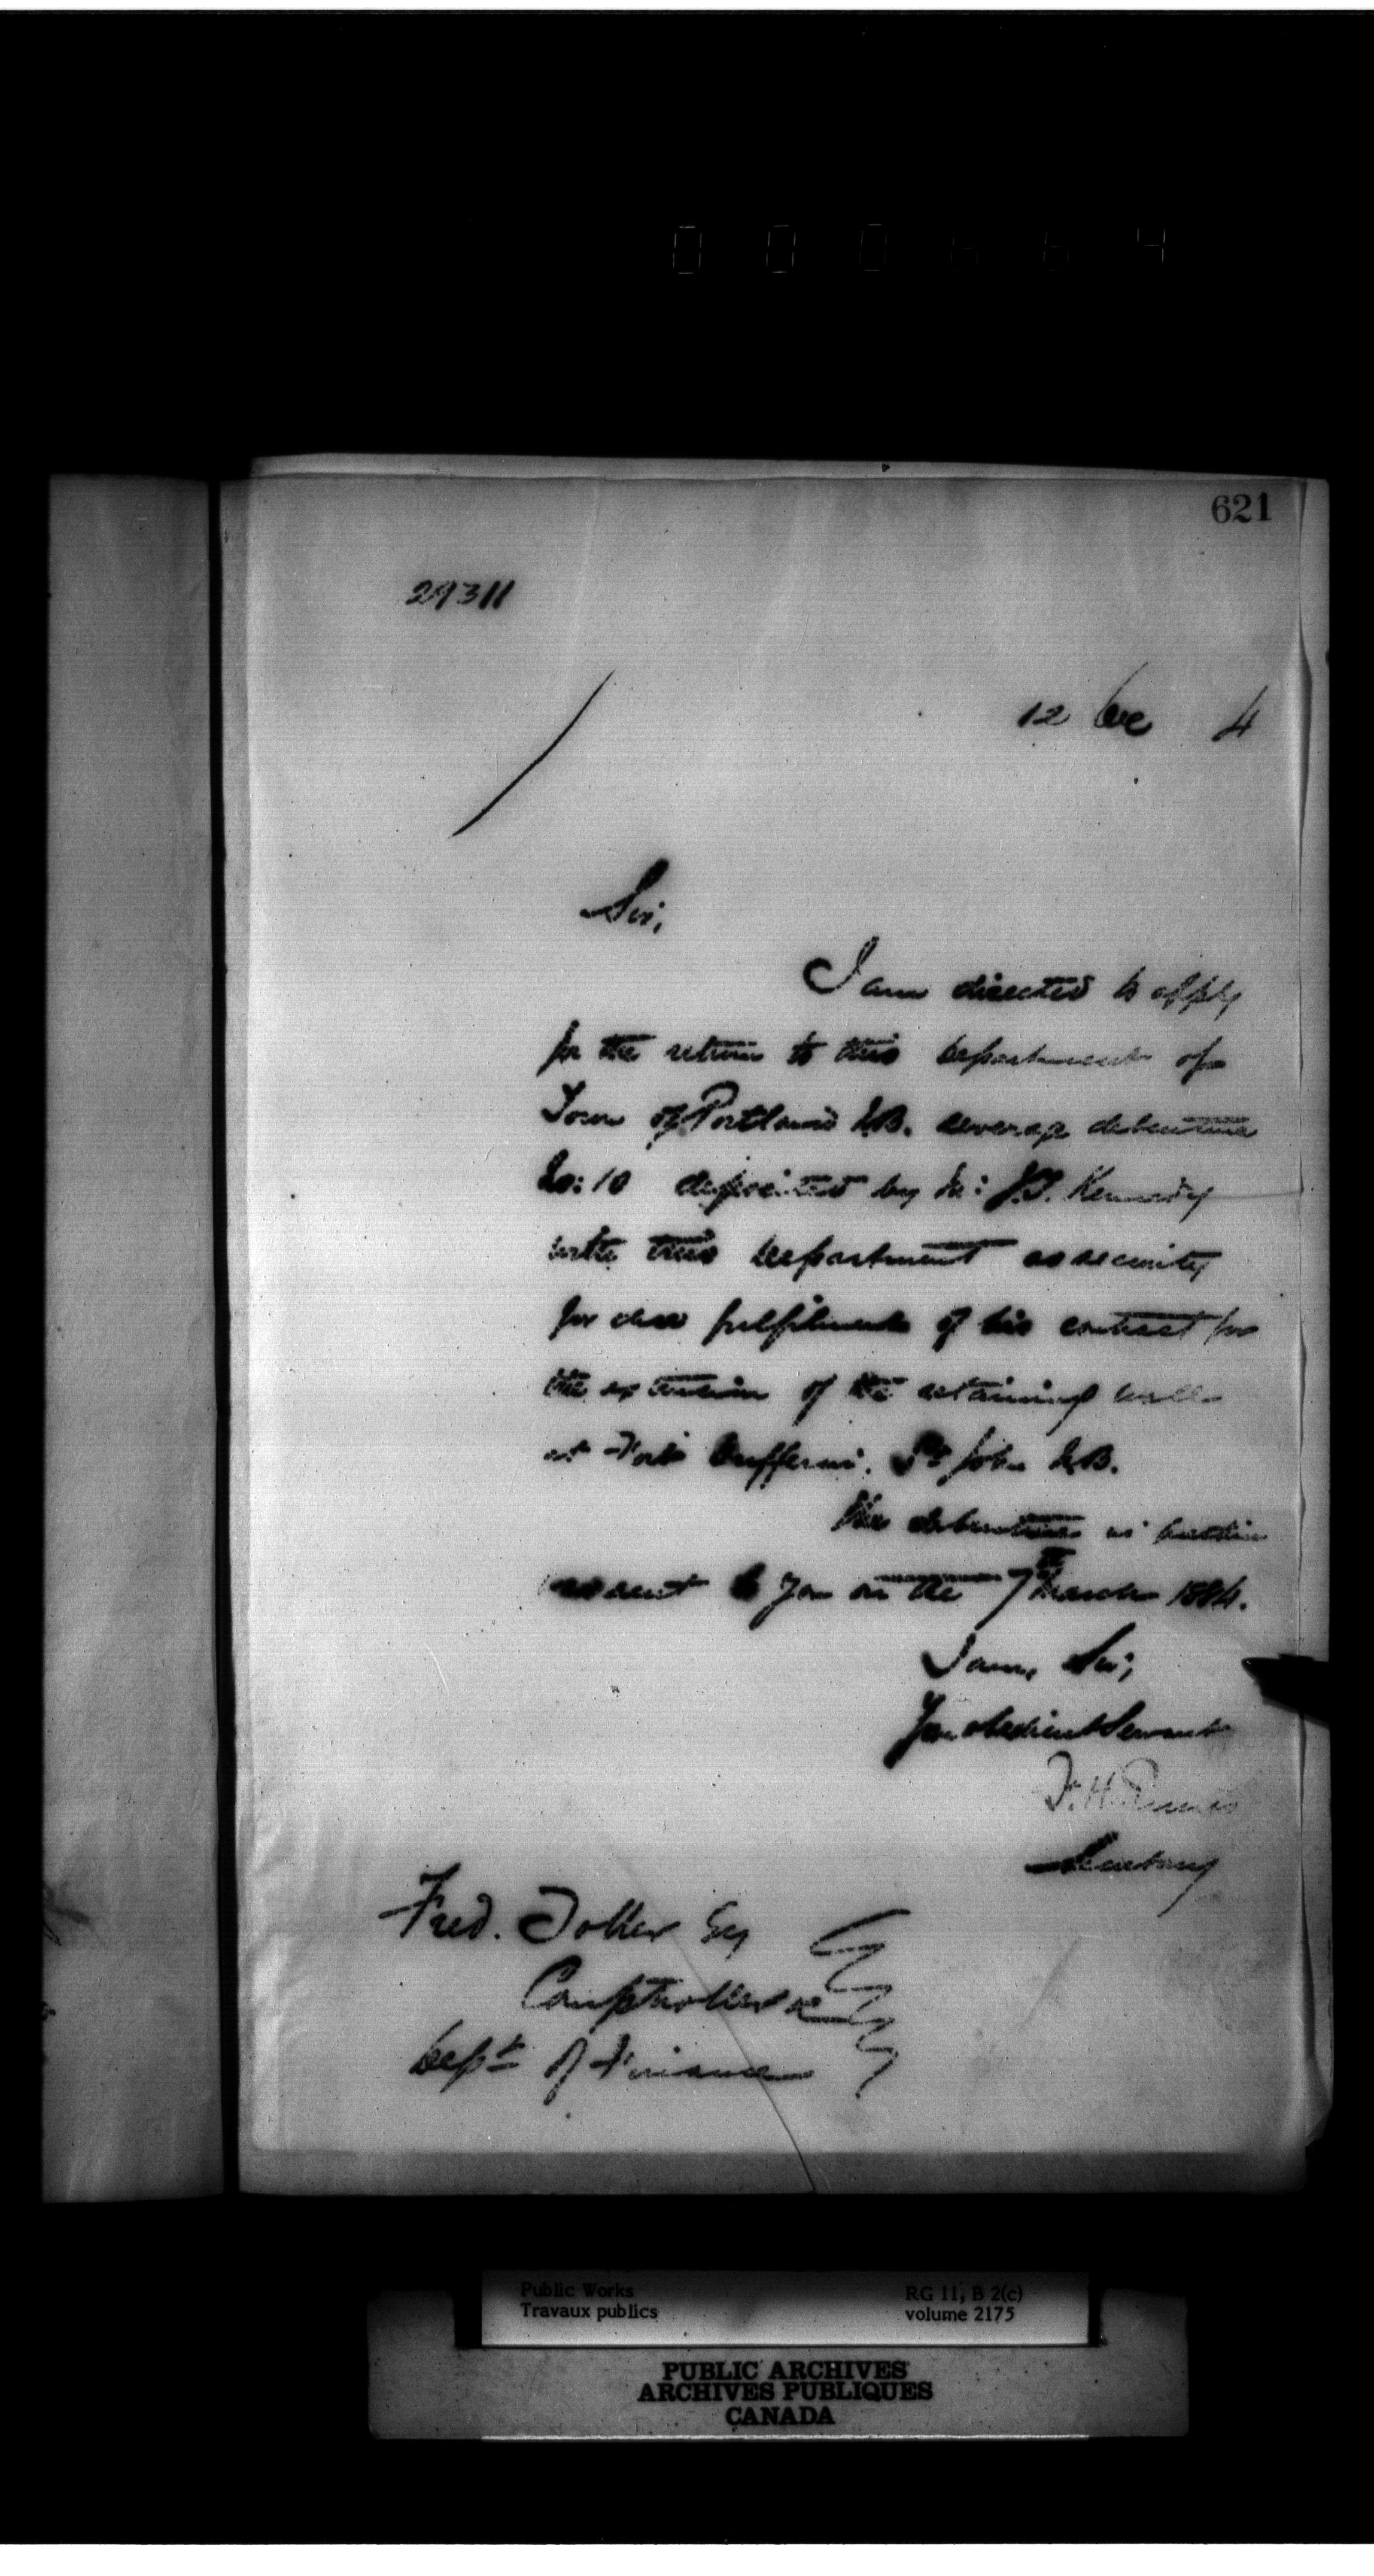 000664
621
29311
12 Dec 4
Sir,
I am directed to apply
for the return to this Department of
Town of Portland N.B. sewerage debenture
No: 10 deposited by Mr: J.B. Kennedy
with this Department as security
for due fulfilment of his contract for
the extension of the retaining wall
at Fort Dufferin. St John N.B.
The debenture in question
was sent to you on the 7th March 1884.
I am, Sir,
Your obedient Servant
F. H. Ennis
Secretary
Fred. Toller Esq
Comptroller &c
Dept of Finance
Public Works
Travaux publics
RG 11, B 2(c)
volume 2175
PUBLIC ARCHIVES
ARCHIVES PUBLIQUES
CANADA